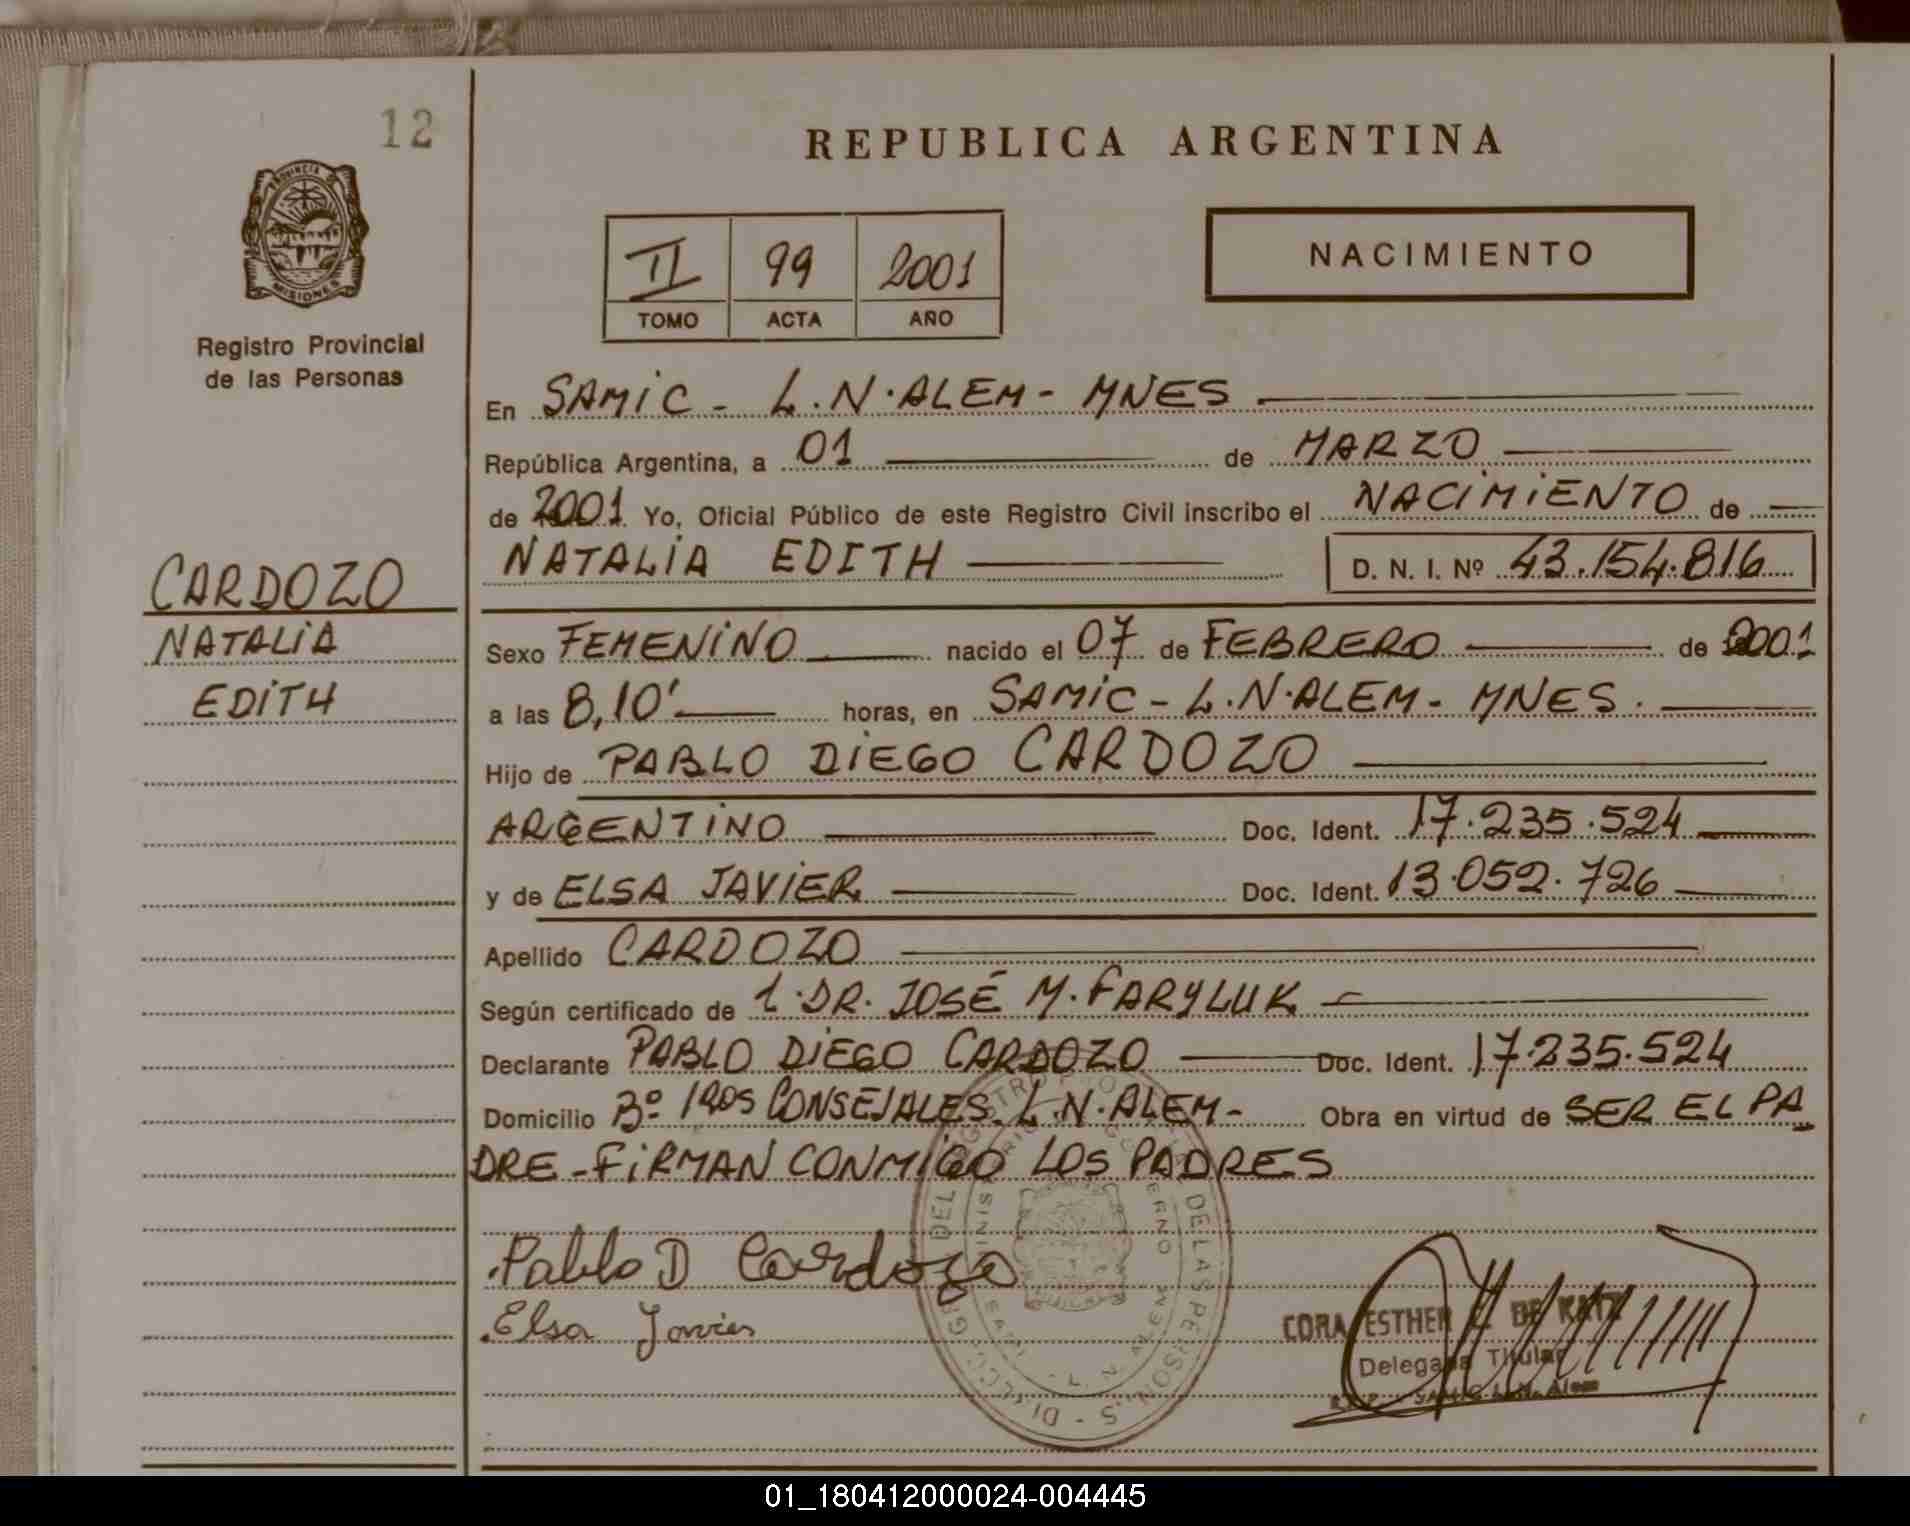 12
REPUBLICA ARGENTINA
PROVINCIA DE
MISIONES
Registro Provincial
de las Personas
II 99 2001
TOMO ACTA AÑO
NACIMIENTO
En SAMIC - L.N.ALEM - MNES
República Argentina, a 01 de MARZO
de 2001 Yo, Oficial Público de este Registro Civil inscribo el NACIMIENTO de
NATALIA EDITH D. N. I. Nº 43.154.816
CARDOZO
NATALIA
EDITH
Sexo FEMENINO nacido el 07 de FEBRERO de 2001
a las 8,10' horas, en SAMIC - L.N.ALEM - MNES.
Hijo de PABLO DIEGO CARDOZO
ARGENTINO Doc. Ident. 17.235.524
y de ELSA JAVIER Doc. Ident. 13.052.726
Apellido CARDOZO
Según certificado de 1.DR. JOSÉ M. FARYLUK
Declarante PABLO DIEGO CARDOZO Doc. Ident. 17.235.524
Domicilio Bº 1ROS CONSEJALES. L.N.ALEM- Obra en virtud de SER EL PA
DRE - FIRMAN CONMIGO LOS PADRES
Pablo D Cardozo
Elsa Javier
CORA ESTHER DE KATZ
Delegada Titular
SAMIC L.N. Alem
01_180412000024-004445